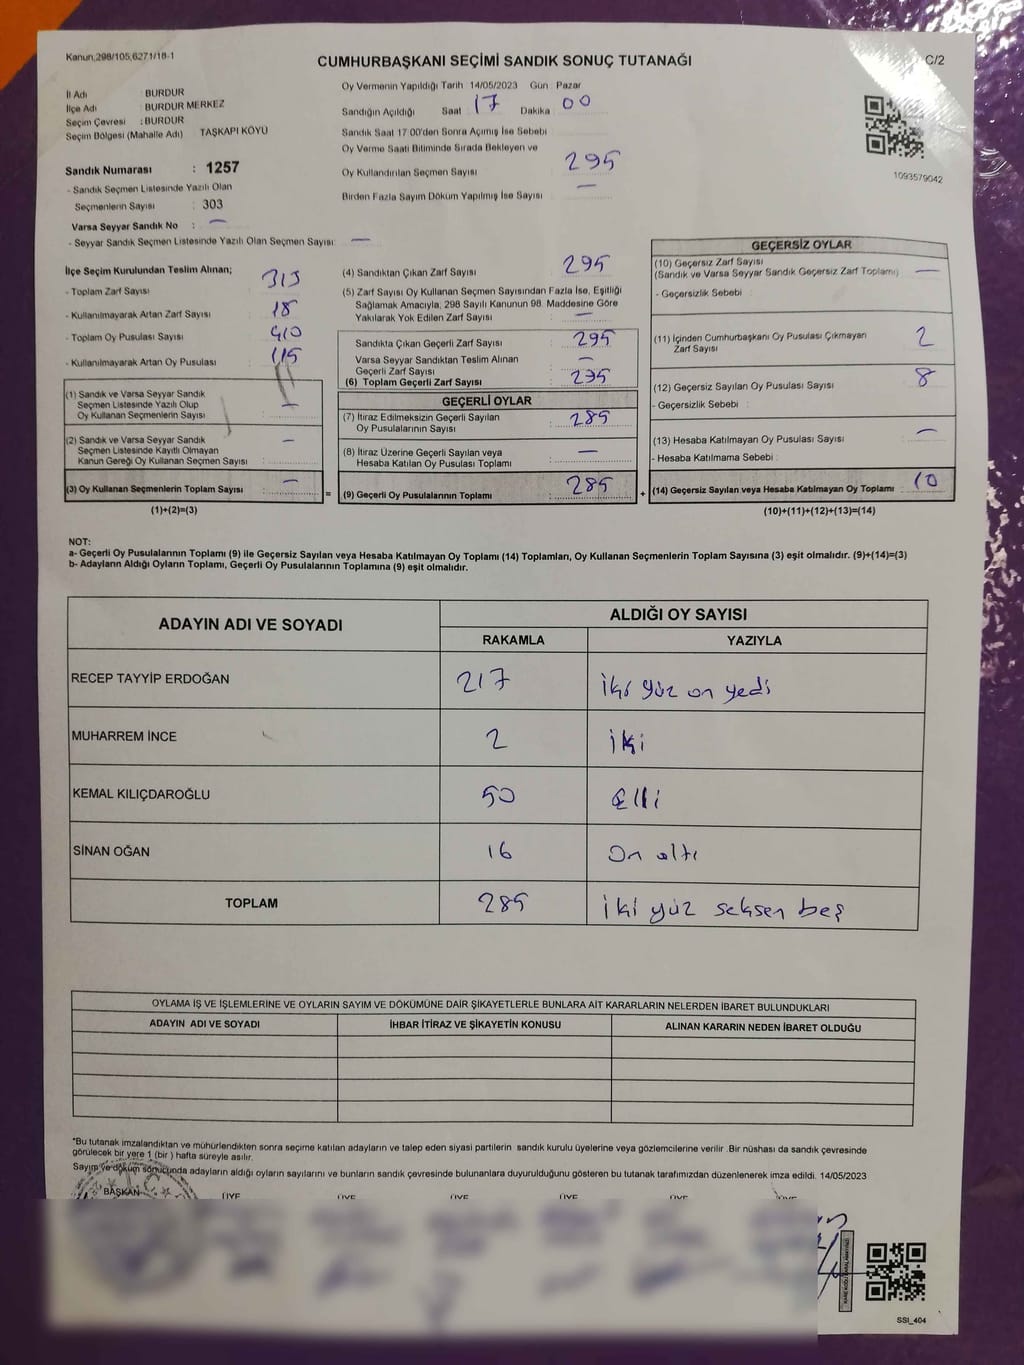 Kanun,298/105,6271/18-1
CUMHURBAŞKANI SEÇİMİ SANDIK SONUÇ TUTANAĞI
C/2
İl Adı : BURDUR
İlçe Adı : BURDUR MERKEZ
Seçim Çevresi : BURDUR
Seçim Bölgesi (Mahalle Adı) TAŞKAPI KÖYÜ
Sandık Numarası : 1257
- Sandık Seçmen Listesinde Yazılı Olan
Seçmenlerin Sayısı : 303
Varsa Seyyar Sandık No : —
- Seyyar Sandık Seçmen Listesinde Yazılı Olan Seçmen Sayısı: —
Oy Vermenin Yapıldığı Tarih 14/05/2023 Gün Pazar
Sandığın Açıldığı Saat 17 Dakika 00
Sandık Saat 17:00'den Sonra Açımış İse Sebebi
Oy Verme Saati Bitiminde Sırada Bekleyen ve
Oy Kullandırılan Seçmen Sayısı 295
Birden Fazla Sayım Döküm Yapılmış İse Sayısı —
1093579042
İlçe Seçim Kurulundan Teslim Alınan;
- Toplam Zarf Sayısı 313
- Kullanılmayarak Artan Zarf Sayısı 18
- Toplam Oy Pusulası Sayısı 410
- Kullanılmayarak Artan Oy Pusulası 115
(1) Sandık ve Varsa Seyyar Sandık
Seçmen Listesinde Yazılı Olup
Oy Kullanan Seçmenlerin Sayısı : —
(2) Sandık ve Varsa Seyyar Sandık
Seçmen Listesinde Kayıtlı Olmayan
Kanun Gereği Oy Kullanan Seçmen Sayısı : —
(3) Oy Kullanan Seçmenlerin Toplam Sayısı : —
(1)+(2)=(3)
(4) Sandıktan Çıkan Zarf Sayısı 295
(5) Zarf Sayısı Oy Kullanan Seçmen Sayısından Fazla İse, Eşitliği
Sağlamak Amacıyla, 298 Sayılı Kanunun 98. Maddesine Göre
Yakılarak Yok Edilen Zarf Sayısı : —
Sandıkta Çıkan Geçerli Zarf Sayısı : 295
Varsa Seyyar Sandıktan Teslim Alınan
Geçerli Zarf Sayısı : —
(6) Toplam Geçerli Zarf Sayısı : 295
GEÇERLİ OYLAR
(7) İtiraz Edilmeksizin Geçerli Sayılan
Oy Pusulalarının Sayısı : 285
(8) İtiraz Üzerine Geçerli Sayılan veya
Hesaba Katılan Oy Pusulası Toplamı : —
= (9) Geçerli Oy Pusulalarının Toplamı : 285
GEÇERSİZ OYLAR
(10) Geçersiz Zarf Sayısı
(Sandık ve Varsa Seyyar Sandık Geçersiz Zarf Toplamı) —
- Geçersizlik Sebebi :
(11) İçinden Cumhurbaşkanı Oy Pusulası Çıkmayan
Zarf Sayısı 2
(12) Geçersiz Sayılan Oy Pusulası Sayısı 8
- Geçersizlik Sebebi :
(13) Hesaba Katılmayan Oy Pusulası Sayısı —
- Hesaba Katılmama Sebebi :
+ (14) Geçersiz Sayılan veya Hesaba Katılmayan Oy Toplamı 10
(10)+(11)+(12)+(13)=(14)
NOT:
a- Geçerli Oy Pusulalarının Toplamı (9) ile Geçersiz Sayılan veya Hesaba Katılmayan Oy Toplamı (14) Toplamları, Oy Kullanan Seçmenlerin Toplam Sayısına (3) eşit olmalıdır. (9)+(14)=(3)
b- Adayların Aldığı Oyların Toplamı, Geçerli Oy Pusulalarının Toplamına (9) eşit olmalıdır.
ADAYIN ADI VE SOYADI
ALDIĞI OY SAYISI
RAKAMLA YAZIYLA
RECEP TAYYİP ERDOĞAN 217 iki yüz on yedi
MUHARREM İNCE 2 iki
KEMAL KILIÇDAROĞLU 50 Elli
SİNAN OĞAN 16 On altı
TOPLAM 285 iki yüz seksen beş
OYLAMA İŞ VE İŞLEMLERİNE VE OYLARIN SAYIM VE DÖKÜMÜNE DAİR ŞİKAYETLERLE BUNLARA AİT KARARLARIN NELERDEN İBARET BULUNDUKLARI
ADAYIN ADI VE SOYADI İHBAR İTİRAZ VE ŞİKAYETİN KONUSU ALINAN KARARIN NEDEN İBARET OLDUĞU
*Bu tutanak imzalandıktan ve mühürlendikten sonra seçime katılan adayların ve talep eden siyasi partilerin sandık kurulu üyelerine veya gözlemcilerine verilir. Bir nüshası da sandık çevresinde
görülecek bir yere 1 (bir ) hafta süreyle asılır.
Sayım ve döküm sonucunda adayların aldığı oyların sayılarını ve bunların sandık çevresinde bulunanlara duyurulduğunu gösteren bu tutanak tarafımızdan düzenlenerek imza edildi. 14/05/2023
BAŞKAN ÜYE ÜYE ÜYE ÜYE ÜYE ÜYE
SSI_404